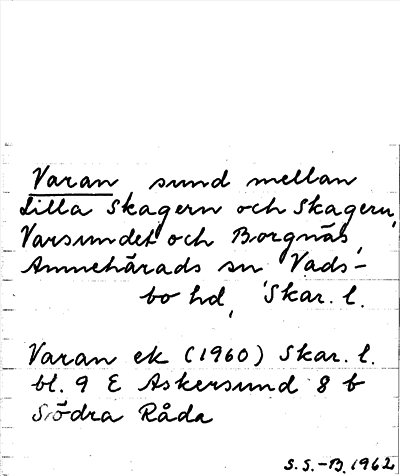 Varan sund mellan
Lilla Skagern och Skagern,
Varsundet och Borgnäs,
Amnehärads sn Vads-
bo hd, Skar. l.
Varan ek (1960) Skar. l.
bl. 9 E Askersund 8 b
Södra Råda
S. S.-B. 1962